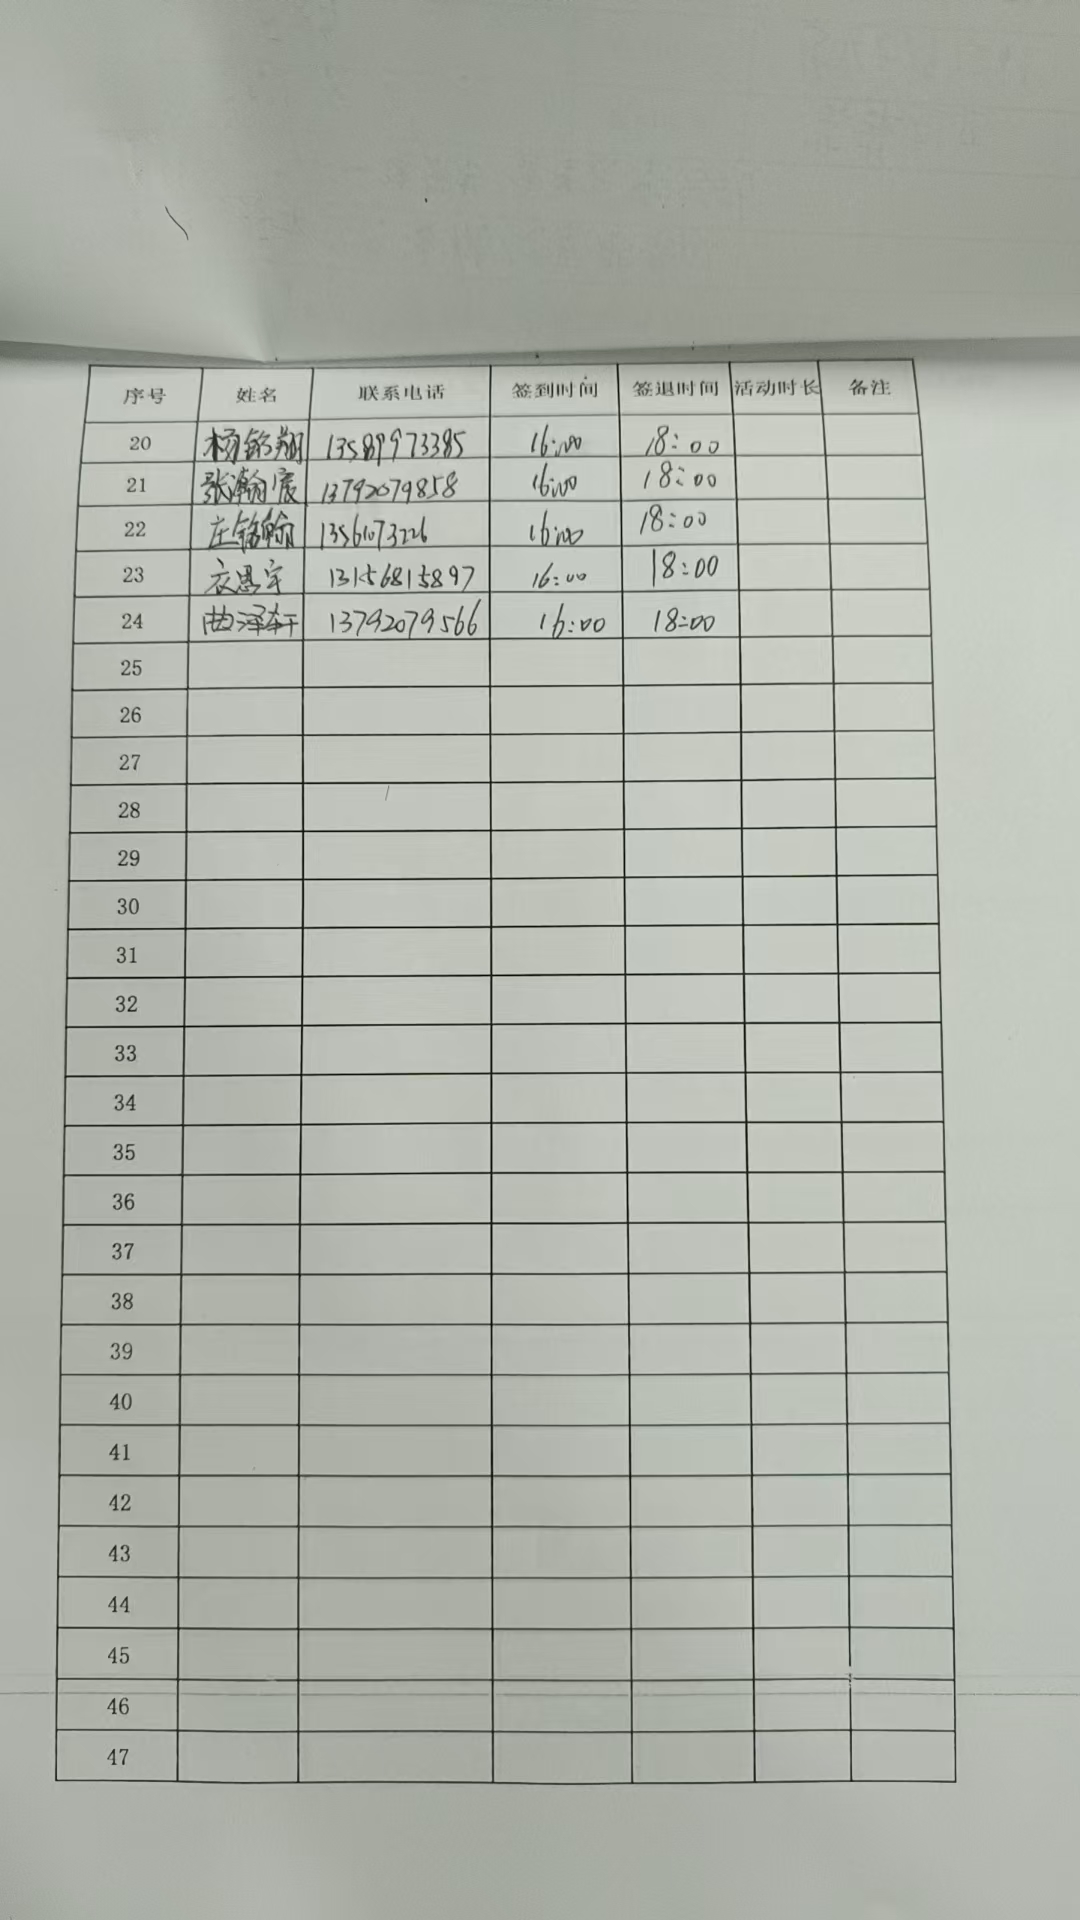 序号 姓名 联系电话 签到时间 签退时间 活动时长 备注
20 杨铭翔 13589973385 16:00 18:00
21 张瀚宸 13792079858 16:00 18:00
22 庄铭翰 13561073226 16:00 18:00
23 衣恩宇 13156815897 16:00 18:00
24 曲泽轩 13792079566 16:00 18:00
25
26
27
28
29
30
31
32
33
34
35
36
37
38
39
40
41
42
43
44
45
46
47